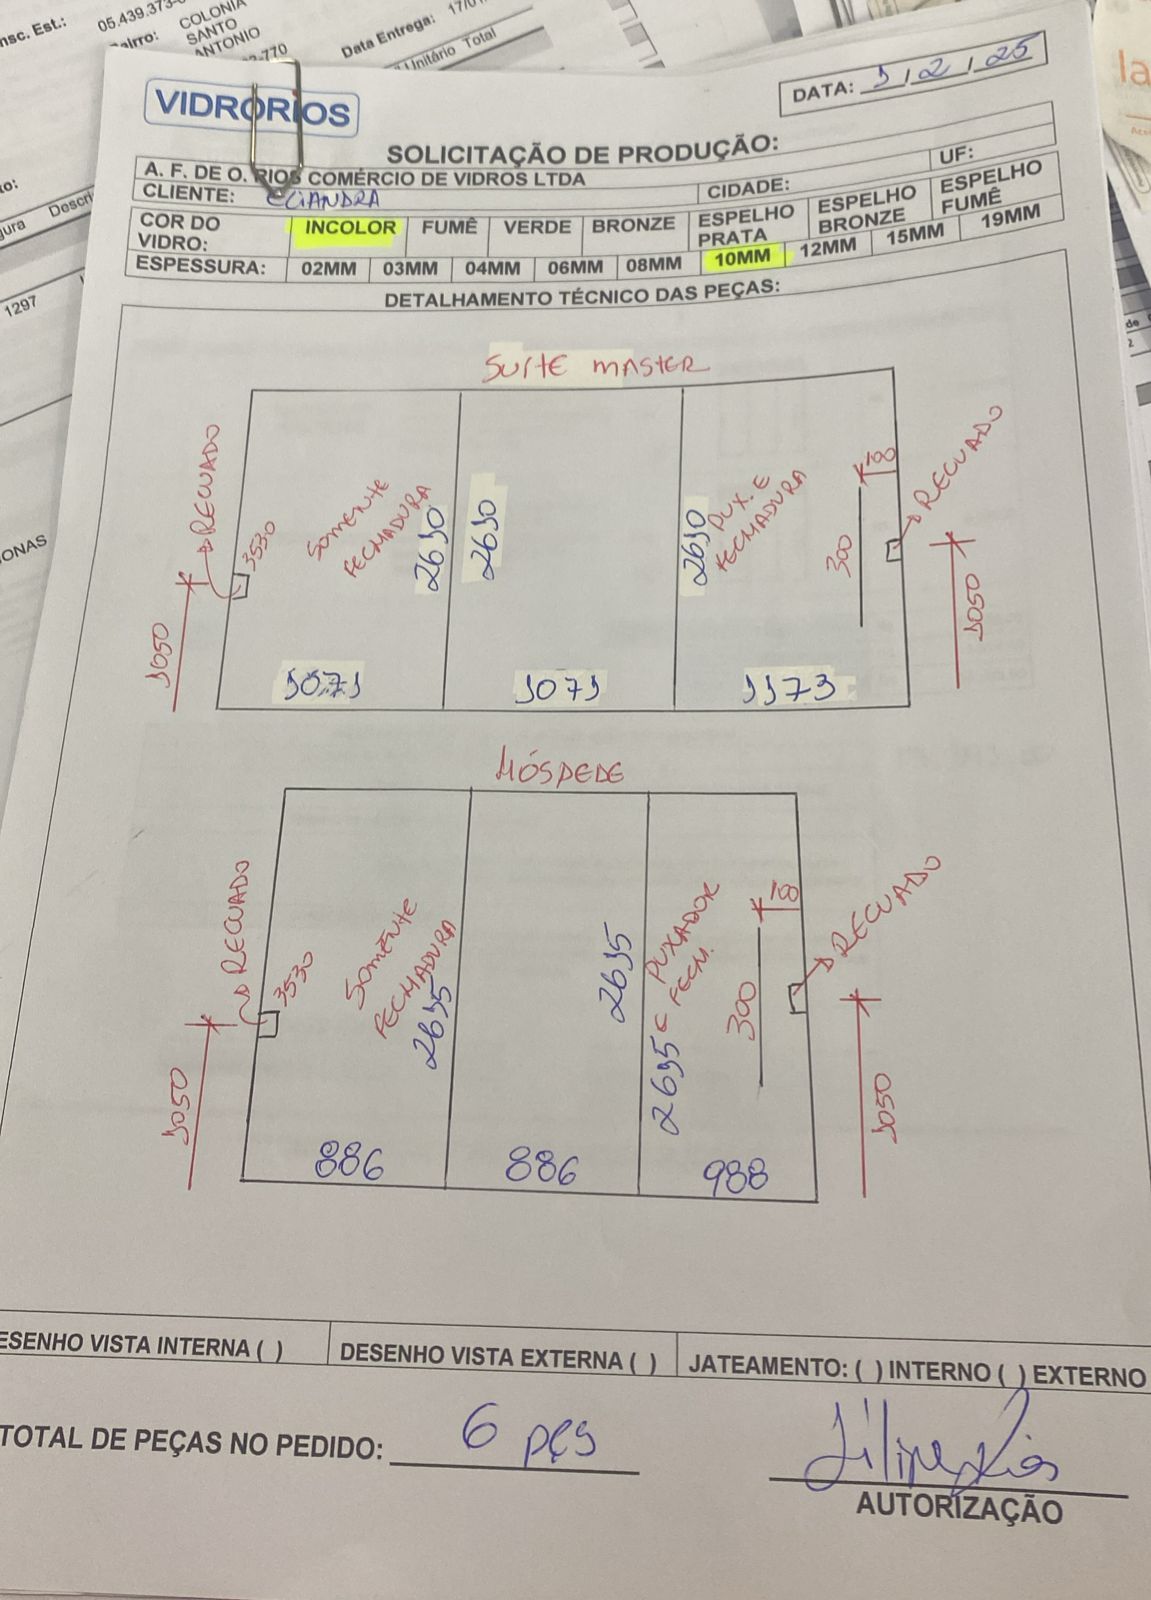 nsc. Est.:
05.439.373-
COLONIA
SANTO
ANTONIO
Data Entrega: 17/0
Unitário Total
VIDRORIOS
DATA: 1/2/25
SOLICITAÇÃO DE PRODUÇÃO:
A. F. DE O. RIOS COMÉRCIO DE VIDROS LTDA
UF:
CLIENTE: ELIANDRA
CIDADE:
COR DO VIDRO:
INCOLOR
FUMÊ
VERDE
BRONZE
ESPELHO PRATA
ESPELHO BRONZE
ESPELHO FUMÊ
ESPESSURA:
02MM
03MM
04MM
06MM
08MM
10MM
12MM
15MM
19MM
1297
ONAS
DETALHAMENTO TÉCNICO DAS PEÇAS:
SUITE MASTER
RECUADO
3530
1050
SOMENTE
FECHADURA
2610
2610
2610
PUX. E
FECHADURA
300
100
RECUADO
1050
1071
1071
1173
HÓSPEDE
RECUADO
3530
1050
SOMENTE
FECHADURA
2615
2615
2615
PUXADOR
E FECH.
300
100
RECUADO
1050
886
886
988
ESENHO VISTA INTERNA ( )
DESENHO VISTA EXTERNA ( )
JATEAMENTO: ( ) INTERNO ( ) EXTERNO
TOTAL DE PEÇAS NO PEDIDO: 6 pçs
Filipe Rios
AUTORIZAÇÃO